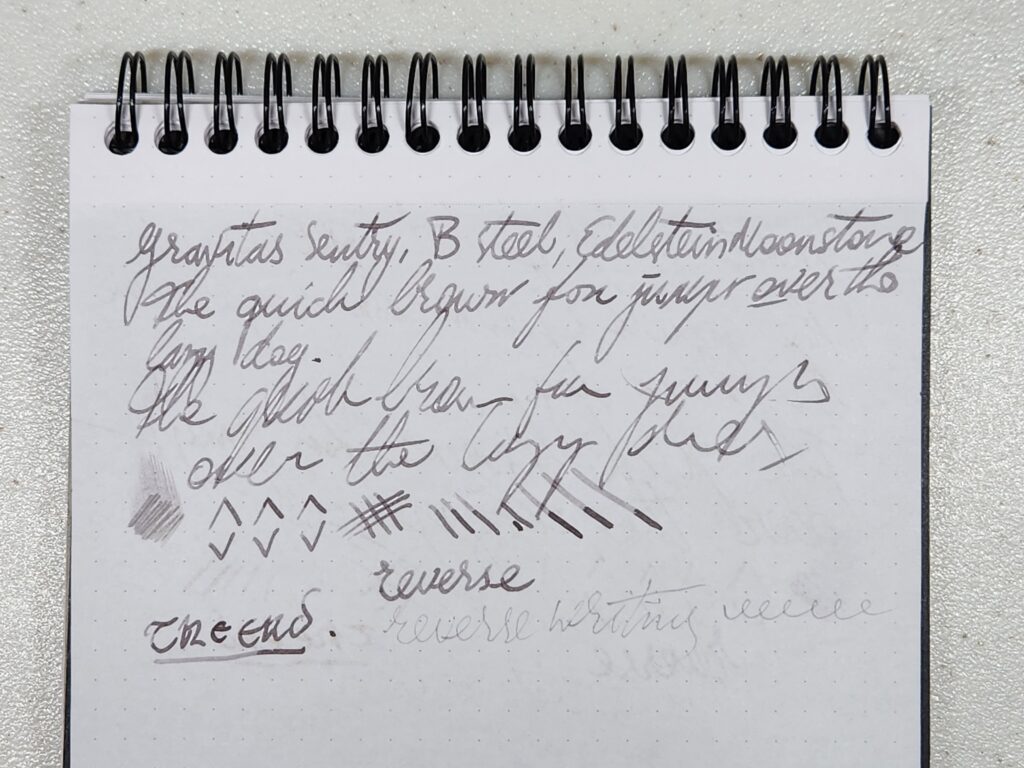 Gravitas Sentry, B steel, Edelstein Moonstone
The quick brown fox jumps over the
lazy dog.
The quick brown fox jumps
over the lazy
reverse
THE END. reverse writing eeeeee